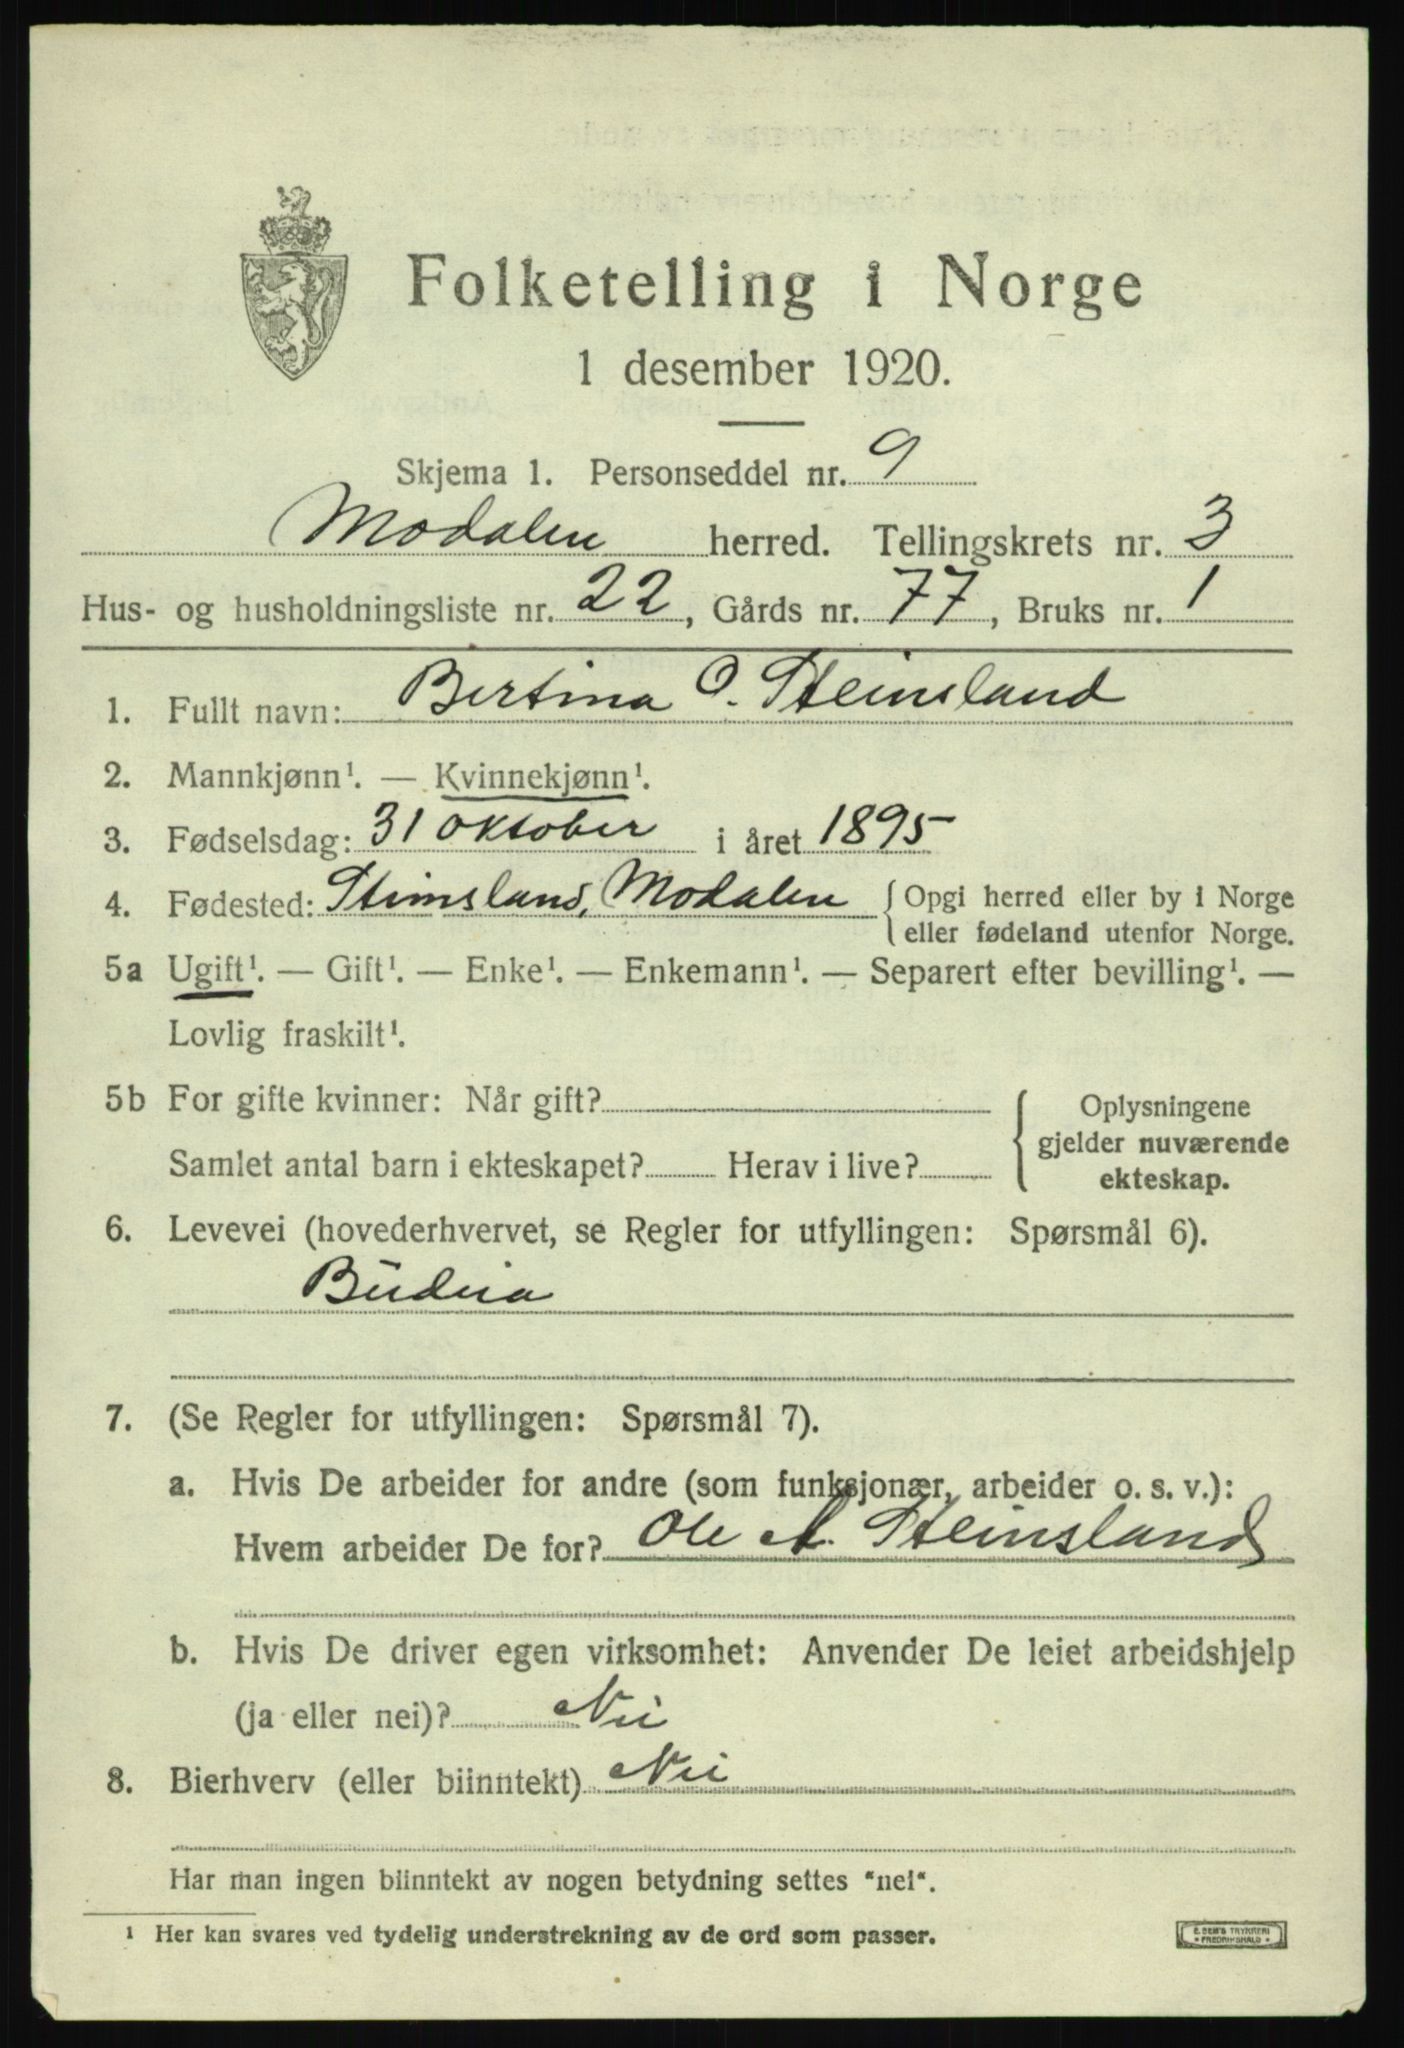 Folketelling i Norge
1 desember 1920.
Skjema 1. Personseddel nr. 9
Modalen herred. Tellingskrets nr. 3
Hus- og husholdningsliste nr. 22, Gårds nr. 77, Bruks nr. 1
1. Fullt navn: Bertina O. Steinsland
2. Mannkjønn¹. — Kvinnekjønn¹.
3. Fødselsdag: 31 oktober i året 1895
4. Fødested: Steinsland, Modalen { Opgi herred eller by i Norge
eller fødeland utenfor Norge.
5a Ugift¹. — Gift¹. — Enke¹. — Enkemann¹. — Separert efter bevilling¹. —
Lovlig fraskilt¹.
5b For gifte kvinner: Når gift?
Samlet antal barn i ekteskapet? Herav i live?
Oplysningene
gjelder nuværende
ekteskap.
6. Levevei (hovederhvervet, se Regler for utfyllingen: Spørsmål 6).
Budeia
7. (Se Regler for utfyllingen: Spørsmål 7).
a. Hvis De arbeider for andre (som funksjonær, arbeider o. s. v.):
Hvem arbeider De for? Ole A. Steinsland
b. Hvis De driver egen virksomhet: Anvender De leiet arbeidshjelp
(ja eller nei)? Nei
8. Bierhverv (eller biinntekt) Nei
Har man ingen biinntekt av nogen betydning settes "nei".
¹ Her kan svares ved tydelig understrekning av de ord som passer.
E. SEM'S TRYKKERI
* FREDRIKSHALD *